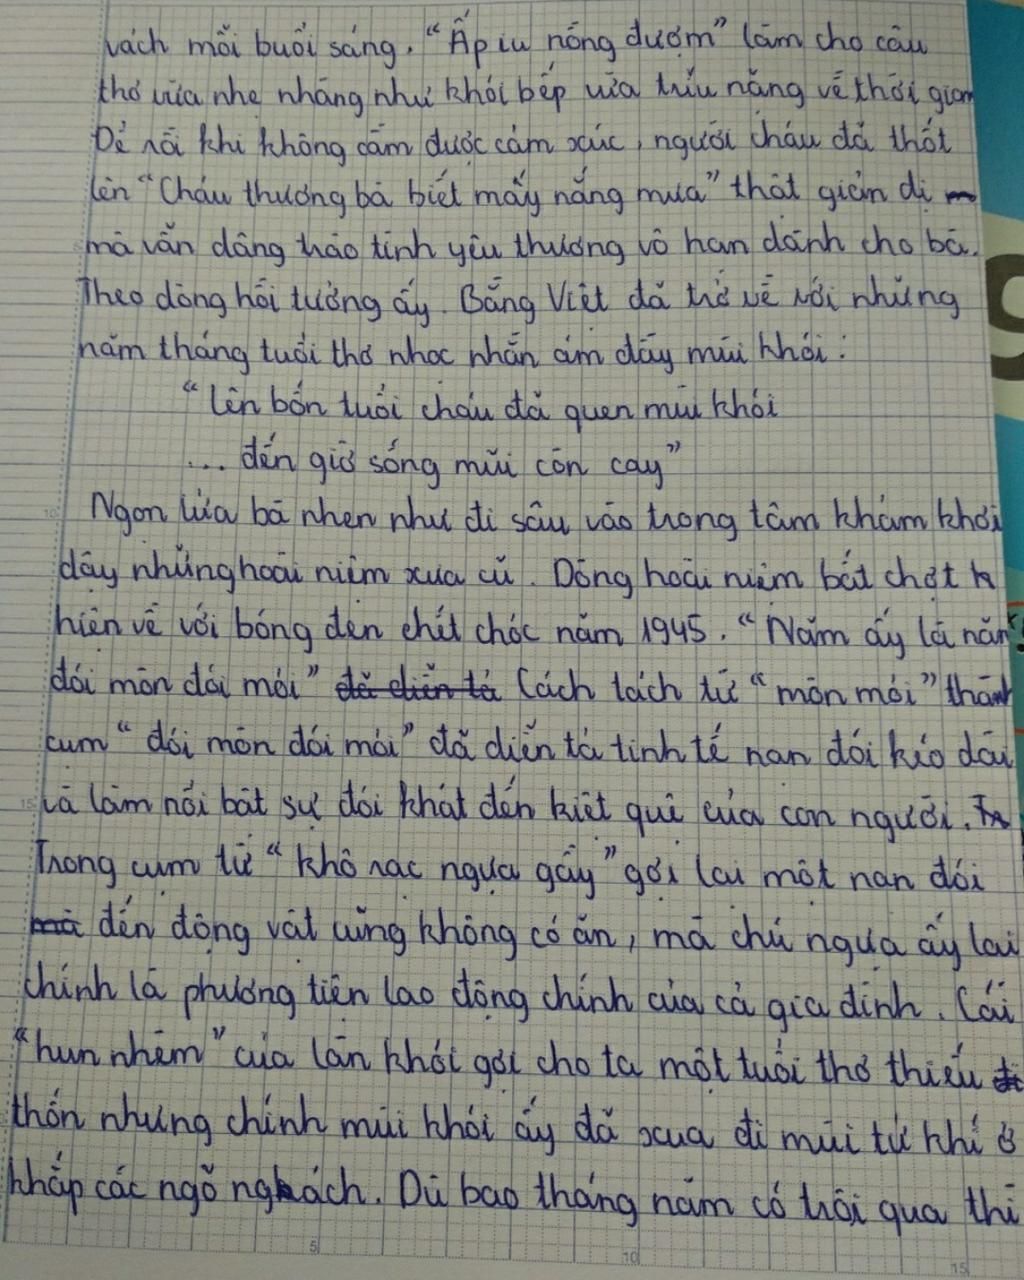 vách mỗi buổi sáng. "Ấp iu nồng đượm" làm cho câu
thơ vừa nhẹ nhàng như khói bếp vừa trĩu nặng về thời gian
Để rồi khi không cầm được cảm xúc, người cháu đã thốt
lên "Cháu thương bà biết mấy nắng mưa" thật giản dị
mà vẫn dâng trào tình yêu thương vô hạn dành cho bà.
Theo dòng hồi tưởng ấy. Bằng Việt đã trở về với những
năm tháng tuổi thơ nhọc nhằn ám đầy mùi khói:
"lên bốn tuổi cháu đã quen mùi khói
... đến giờ sống mũi còn cay"
Ngọn lửa bà nhen như đi sâu vào trong tâm khảm khơi
dậy những hoài niệm xưa cũ. Dòng hoài niệm bất chợt
hiện về với bóng đen chết chóc năm 1945. "Năm ấy là năm
đói mòn đói mỏi" đã diễn tả Cách tách từ "mòn mỏi" thành
cụm "đói mòn đói mỏi" đã diễn tả tinh tế nạn đói kéo dài
và làm nổi bật sự đói khát đến kiệt quệ của con người.
Trong cụm từ "khô rạc ngựa gầy" gợi lại một nạn đói
mà đến động vật cũng không có ăn, mà chú ngựa ấy lại
chính là phương tiện lao động chính của cả gia đình. Cái
"hun nhèm" của làn khói gợi cho ta một tuổi thơ thiếu
thốn nhưng chính mùi khói ấy đã xua đi mùi tử khí ở
khắp các ngõ ngách. Dù bao tháng năm có trôi qua thì
5 10 15
10
15